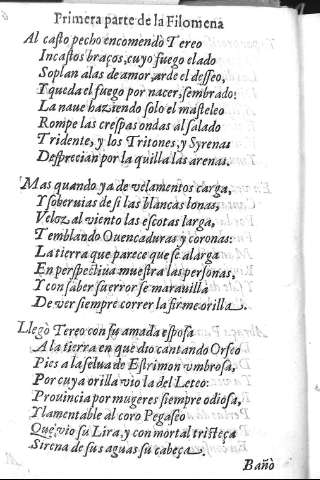 Primera parte de la Filomena
Al casto pecho encomendò Tereo
Incastos braços, cuyo fuego elado
Soplan alas de amor, arde el desseo,
Y queda el fuego por nacer, sembrado:
La naue haziendo solo el masteleo
Rompe las crespas ondas al salado
Tridente, y los Tritones, y Syrenas
Desprecian por la quilla las arenas.
Mas quando ya de velamentos carga,
Y soberuias de si las blancas lonas,
Veloz al viento las escotas larga,
Temblando Ouencaduras y coronas:
La tierra que parece que se alarga
En perspectiua muestra las personas,
Y con saber su error se marauilla
De ver siempre correr la firme orilla.
Llegò Tereo con su amada esposa
A la tierra en que dio cantando Orfeo
Pies a la selua de Estrimon vmbrosa,
Por cuya orilla vio la del Leteo:
Prouincia por mugeres siempre odiosa,
Y lamentable al coro Pegaseo
Que vio su Lira, y con mortal tristeça
Sirena de sus aguas su cabeça.
Bañò